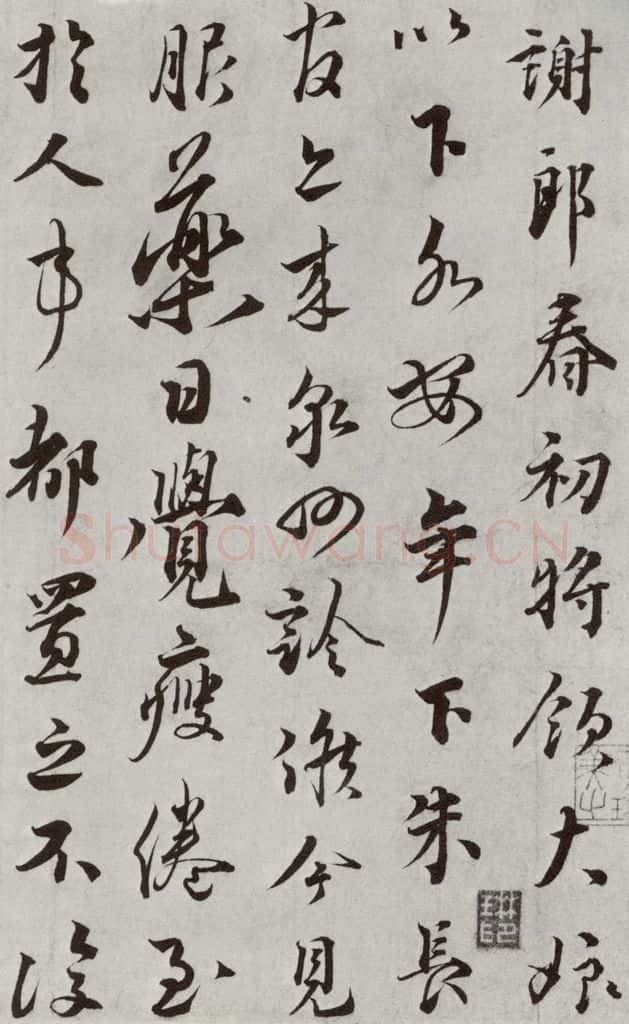 謝郎春初將領大娘
以下各安年下朱長
官亦來泉州診候今見
服藥日覺瘦倦至
於人事都置之不復
Shufawang.CN